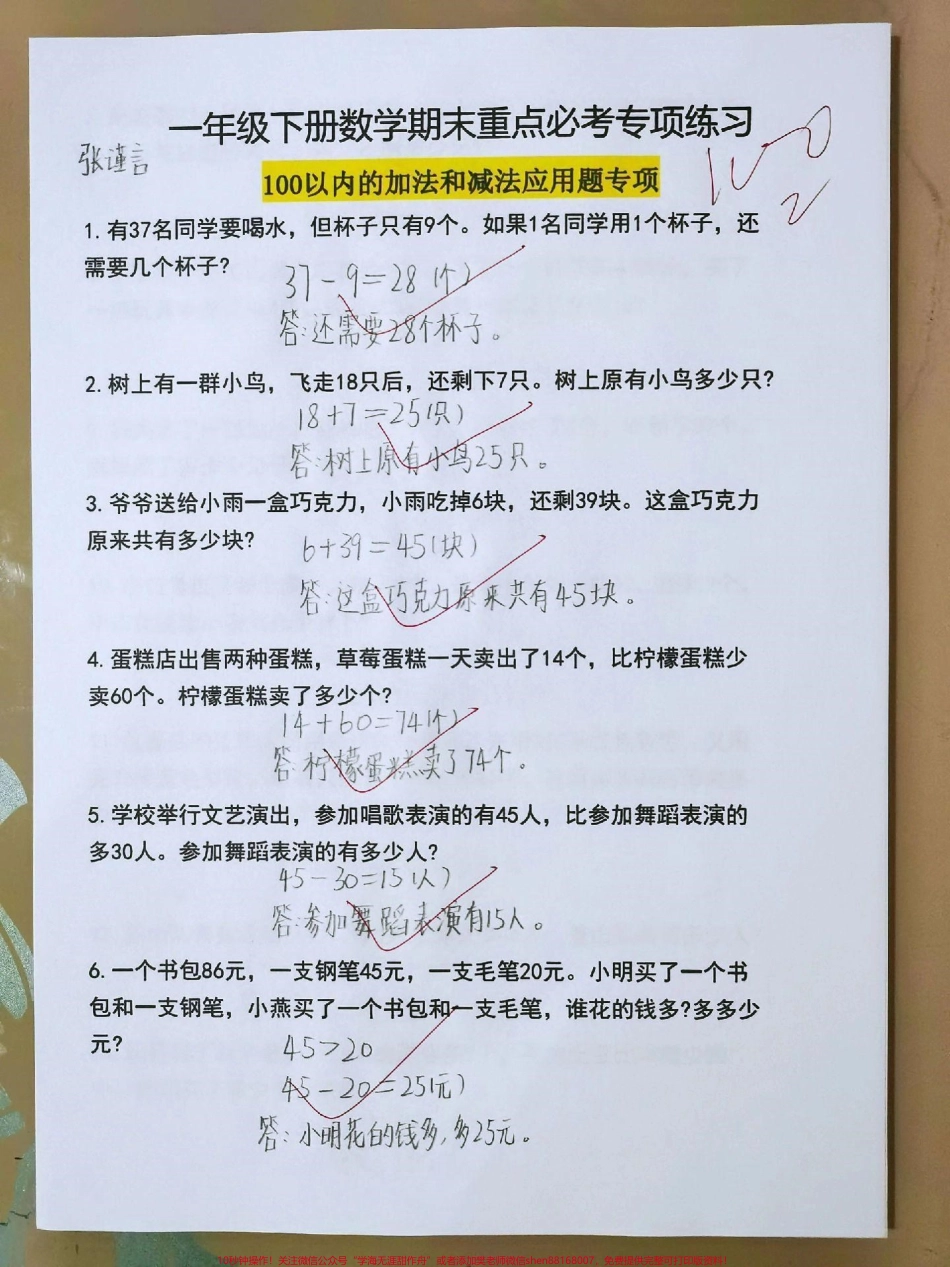 一年级下册数学期末重点必考专项练习
张谨言
100
2
100以内的加法和减法应用题专项
1. 有37名同学要喝水，但杯子只有9个。如果1名同学用1个杯子，还
需要几个杯子?
37－9＝28(个)
答:还需要28个杯子。
2. 树上有一群小鸟，飞走18只后，还剩下7只。树上原有小鸟多少只?
18+7＝25(只)
答:树上原有小鸟25只。
3. 爷爷送给小雨一盒巧克力，小雨吃掉6块，还剩39块。这盒巧克力
原来共有多少块?
6+39＝45(块)
答:这盒巧克力原来共有45块。
4. 蛋糕店出售两种蛋糕，草莓蛋糕一天卖出了14个，比柠檬蛋糕少
卖60个。柠檬蛋糕卖了多少个?
14+60＝74(个)
答:柠檬蛋糕卖了74个。
5. 学校举行文艺演出，参加唱歌表演的有45人，比参加舞蹈表演的
多30人。参加舞蹈表演的有多少人?
45－30＝15(人)
答:参加舞蹈表演有15人。
6. 一个书包86元，一支钢笔45元，一支毛笔20元。小明买了一个书
包和一支钢笔，小燕买了一个书包和一支毛笔，谁花的钱多?多多少
元?
45>20
45－20＝25(元)
答:小明花的钱多,多25元。
10秒钟操作！关注微信公众号“学海无涯甜作舟”或者添加樊老师微信shen88168007，免费提供完整可打印版资料！